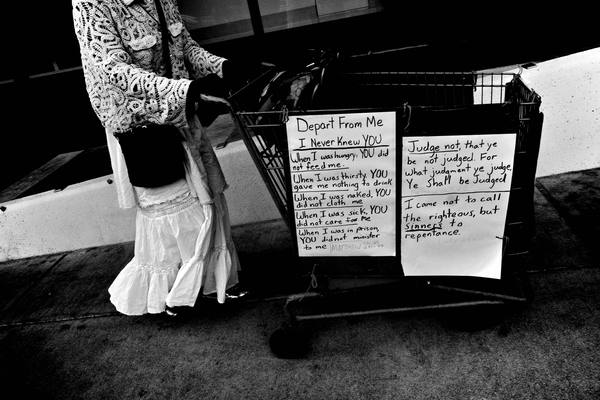 Depart From Me
I Never Knew YOU
When I was hungry, YOU did
not feed me.
When I was thirsty, YOU
gave me nothing to drink
When I was naked, YOU
did not cloth me
When I was sick, YOU
did not care for Me
When I was in prison,
YOU did not minister
to me
Judge not, that ye
be not judged. For
what judgment ye judge,
Ye Shall be Judged
I came not to call
the righteous, but
sinners to
repentance.